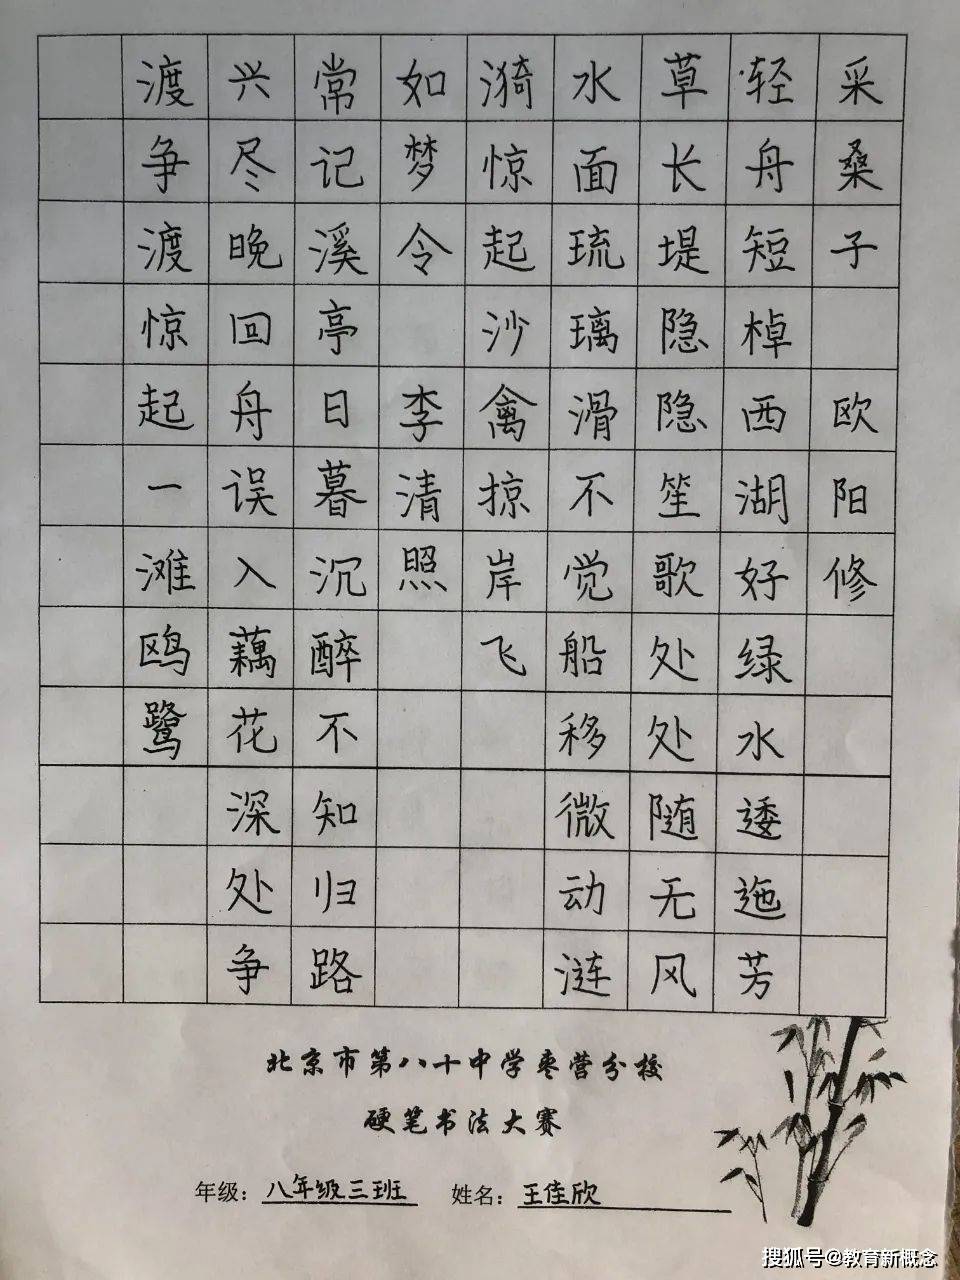 采桑子 欧阳修
轻舟短棹西湖好绿水逶迤芳
草长堤隐隐笙歌处处随无风
水面琉璃滑不觉船移微动涟
漪惊起沙禽掠岸飞
如梦令 李清照
常记溪亭日暮沉醉不知归路
兴尽晚回舟误入藕花深处争
渡争渡惊起一滩鸥鹭
北京市第八十中学枣营分校
硬笔书法大赛
年级：八年级三班 姓名：王佳欣
搜狐号@教育新概念